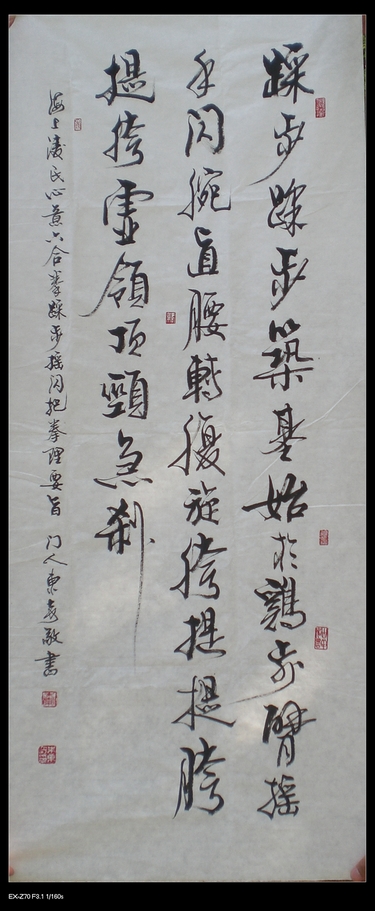 踩步踩步築基始於鷄步臂搖
手閃腕直腰轉腹旋胯提提胯
提挎虛領頂頸急剎
海上凌氏心意六合拳踩步搖閃把拳理要旨 门人東袁敬書
EX-Z70 F3.1 1/160s